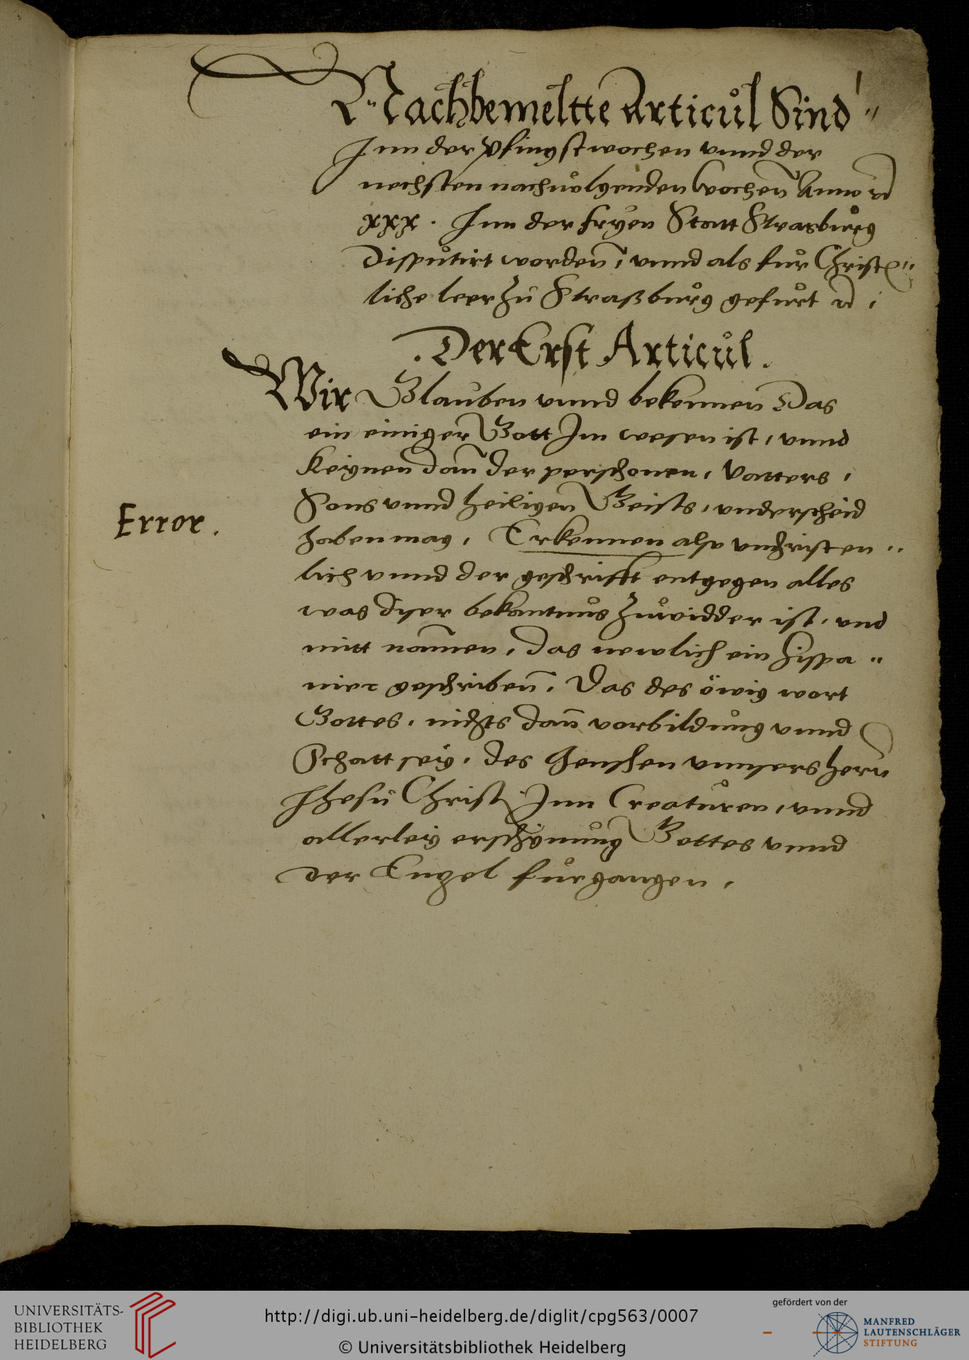 Nachbemeltte Articůl Sind
Inn der pfingstwochen vnnd der
nechsten nachuolgenden wochen Anno
xxx. Inn der fryen Statt Strasbůrg
Dispůtirt worden, vnnd als fůr Christ-
liche leer zů Straßbůrg gefůrt
.Der Erst Articůl.
Wir Glauben vnnd bekennen Das
ein einiger Gott Im wesen ist, vnnd
Keynen dann der perschonen, Vatters,
Sons vnnd heiligen Geists, vnderscheid
Error.
haben mag, Erkennen also vnchristen-
lich vnnd der geschrifft entgegen alles
was diser bekantnůs zůwidder ist, vnd
mitt nammen, das newlich ein hispa-
nier geschriben, Das des öwig wort
Gottes, nichts dann vorbildůng vnnd
Schatt sey, des vnnsers herrn
Jhesu Christ Inn Creatůren, vnnd
allerley erschynůng Gottes vnnd
der Engel fůrgangen,
UNIVERSITÄTS-
BIBLIOTHEK
HEIDELBERG
http://digi.ub.uni-heidelberg.de/diglit/cpg563/0007
© Universitätsbibliothek Heidelberg
gefördert von der
MANFRED
LAUTENSCHLÄGER
STIFTUNG